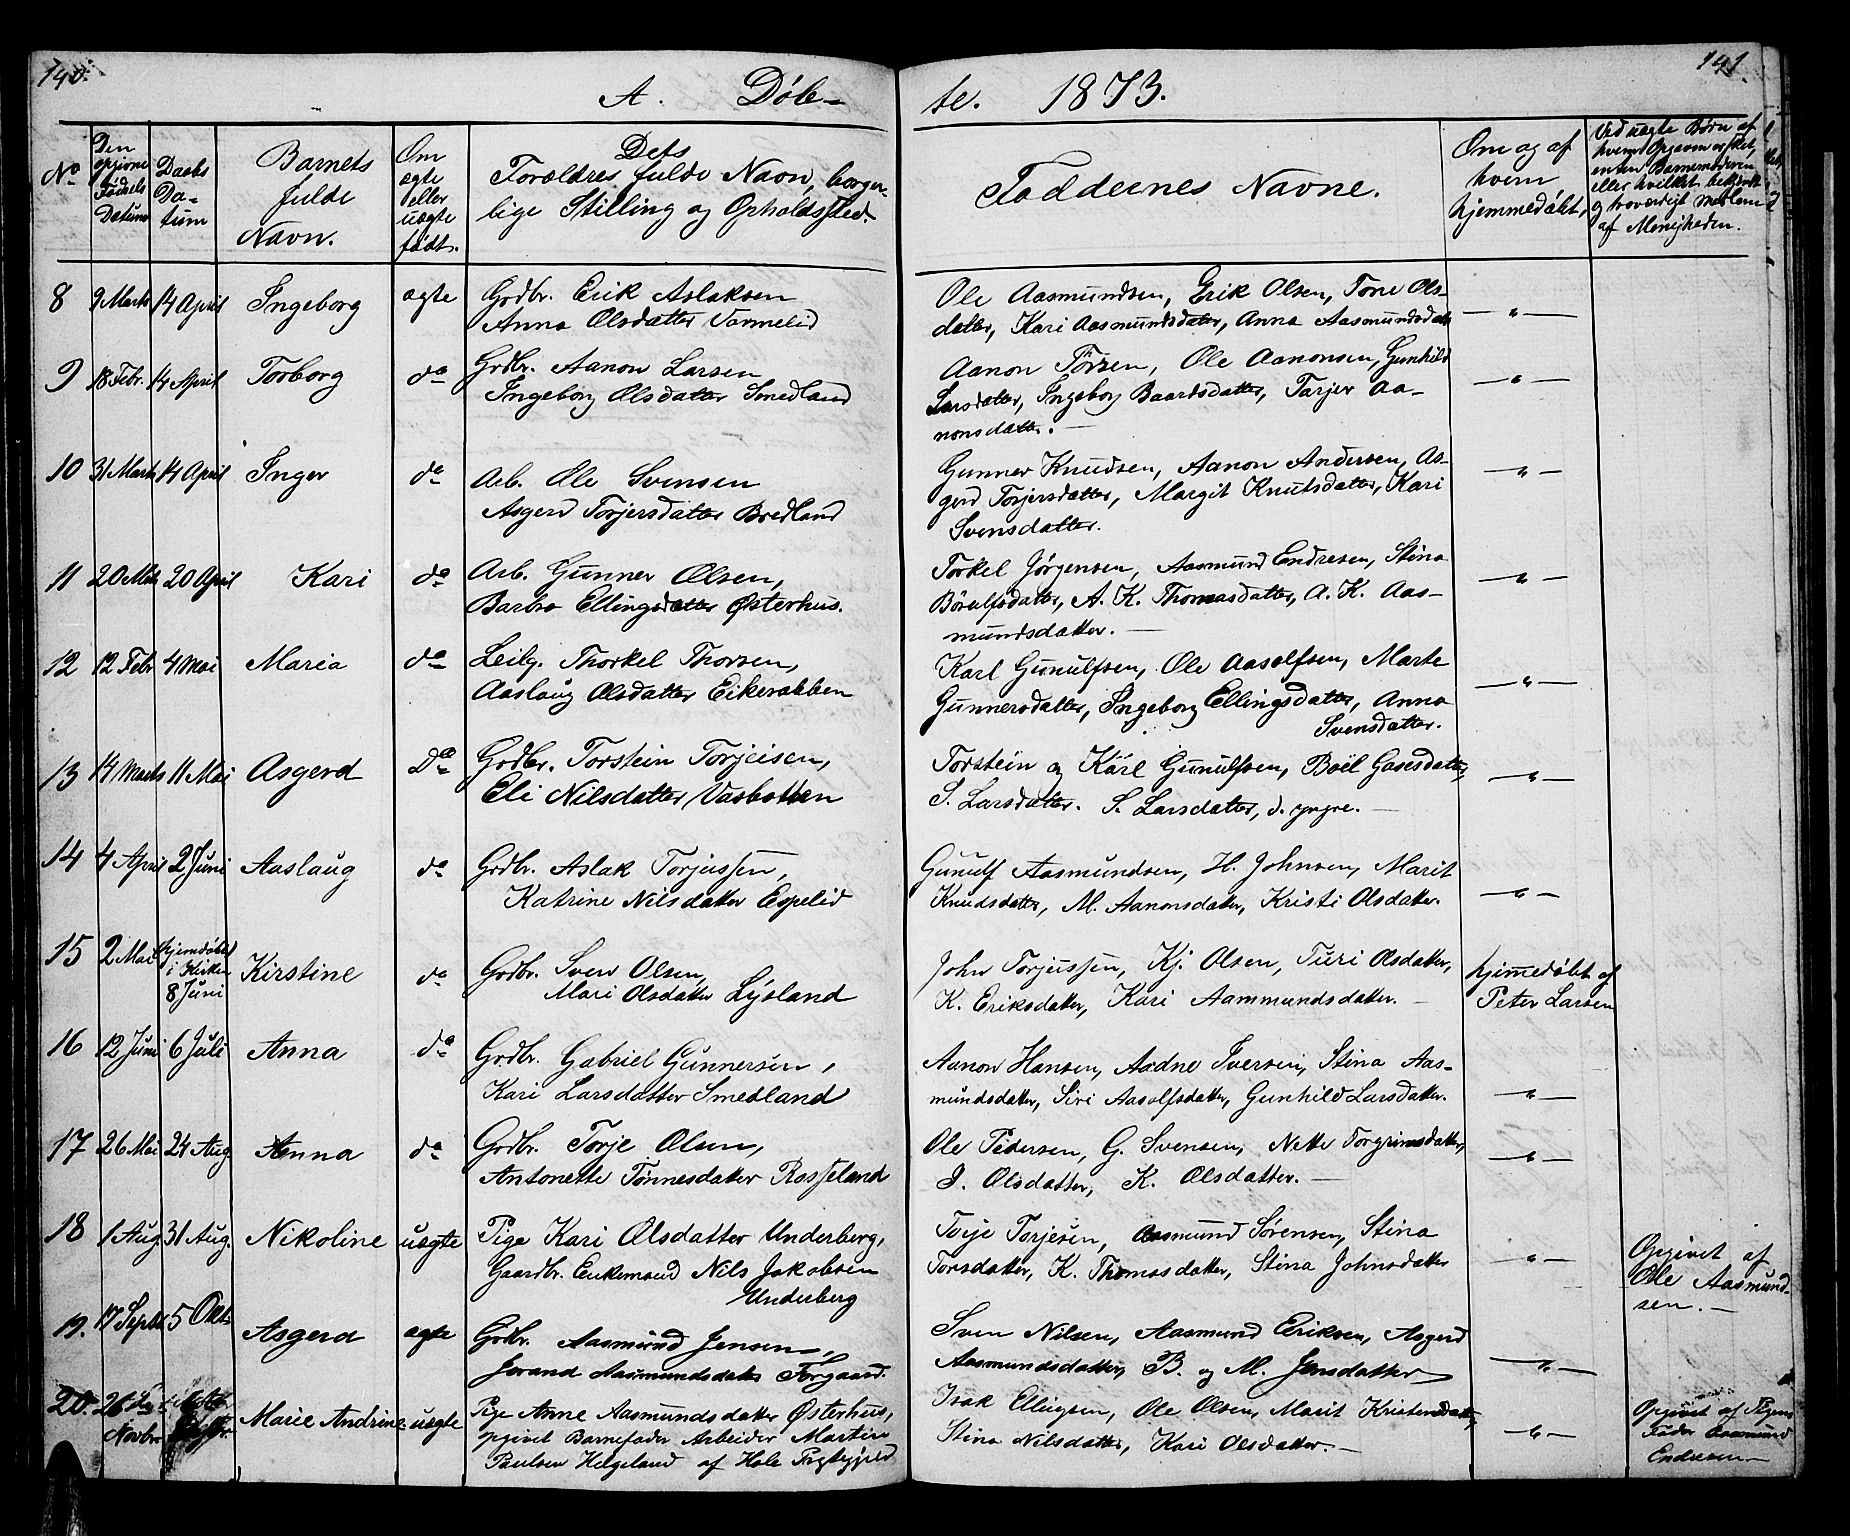 140.
141.
A. Døb-
te. 1873.
No
Den opgivne Fødsels Datum
Daabs Da-tum
Barnets fulde Navn.
Om ægte eller uægte født.
Dets Forældres fulde Navn, borger-
lige Stilling og Opholdssted.
Faddernes Navne.
Om og af hvem hjemmedøbt,
Ved uægte Børn af
hvem Opgaven er sket,
enten Barnemoderen
eller hvilket bekjendt
og troværdigt Medlem
af Menigheden.
8 9 Marts 14 April Ingeborg ægte Grdbr. Erik Aslaksen
Anna Olsdatter Vormelid
Ole Aasmundsen, Erik Olsen, Tone Ols-
datter, Kari Aasmundsdatter, Anna Aasmundsdatt — " —
9 18 Febr. 14 April Torborg do Grdbr. Aanon Larsen
Ingeborg Olsdatter Smedland
Aanon Törsen, Ole Aanonsen, Gunhild
Larsdatter, Ingeborg Baardsdatter, Tarjer Aa- — " —
nonsdatter. —
10 31 Marts 14 April Inger do Arb. Ole Svensen
Asgerd Torjersdatter Bredland
Gunner Knudsen, Aanon Andersen, As-
gerd Torjersdatter, Margit Knutsdatter, Kari — " —
Svensdatter.
11 20 Mts 20 April Kari do Arb. Gunner Olsen,
Barbro Ellingsdatter Østerhus.
Torkel Jørgensen, Aasmund Endresen, Stina
Börulfsdatter, A. K. Thomasdatter, A. K. Aas- — " —
mundsdatter. —
12 12 Febr 4 Mai Maria do Leilg. Thorkel Thorsen,
Aaslaug Olsdatter Eikerabben
Karl Gunulfsen, Ole Aasolfsen, Marte
Gunnersdatter, Ingeborg Ellingsdatter, Anna — " —
Svensdatter.
13 14 Marts 11 Mai Asgerd Do Grdbr. Torstein Torjeisen,
Eli Nilsdatter, Vasbotten
Torstein og Karl Gunulfsen, Boël Gasesdatter,
S. Larsdatter. S. Larsdatter, d. yngre. — — " —
14 4 April 2 Juni Aaslaug do Grdbr. Aslak Torjussen,
Katrine Nilsdatter Espelid
Gunulf Aasmundsen, H. Johnsen, Marit
Knudsdatter, M. Aanonsdatter, Kristi Olsdatter. — " —
15 2 Mai hjemdøbt i Kirken 8 Juni Kirstine do Grdbr. Sven Olsen,
Mari Olsdatter Lysland
John Torjussen, Kj. Olsen, Turi Olsdatter,
K. Eriksdatter, Kari Aammundsdatter. —
hjemedøbt af
Peter Larsen
16 12 Juni 6 Juli Anna do Grdbr. Gabriel Gunnersen,
Kari Larsdatter Smedland
Aanon Hansen, Aadne Iversen, Stina Aas-
mundsdatter, Siri Aasolfsdatter, Gunhild Larsdatter. — " —
17 26 Mai 24 Aug. Anna do Grdbr. Torje Olsen,
Antonette Tönnesdatter Rosseland
Ole Pedersen, G. Svensen, Nette Torgrimsdatter,
I. Olsdatter, K. Olsdatter. — — " —
18 1 Aug. 31 Aug. Nikoline uægte Pige Kari Olsdatter Underberg,
Gaardbr. Enkemand Nils Jakobsen
Underberg
Torje Torjesen, Aasmund Sørensen, Stina
Torsdatter, K. Thomasdatter, Stina Johnsdatter — " —
Opgivet af
Ole Aasmund-
sen. —
19. 17 Septb. 5 Okt. Asgerd ægte Grdbr. Aasmund Jensen,
Jorand Aasmundsdatter Torgaard.
Sven Nilsen, Aasmund Eriksen, Asgerd
Aasmundsdatter, B. og M. Jensdatter — " —
20. 26 Novbr Marie Andrine uægte Pige Anne Aasmundsdatter Østerhus,
opgivet Barnefader Arbeider Martin
Paulsen Helgeland af Hole Prgtgjeld
Isak Ellingsen, Ole Olsen, Marit Kristensdatter,
Stina Nilsdatter, Kari Olsdatter. — — " —
Opgivet af Pigens
Fader Aasmund
Endresen —